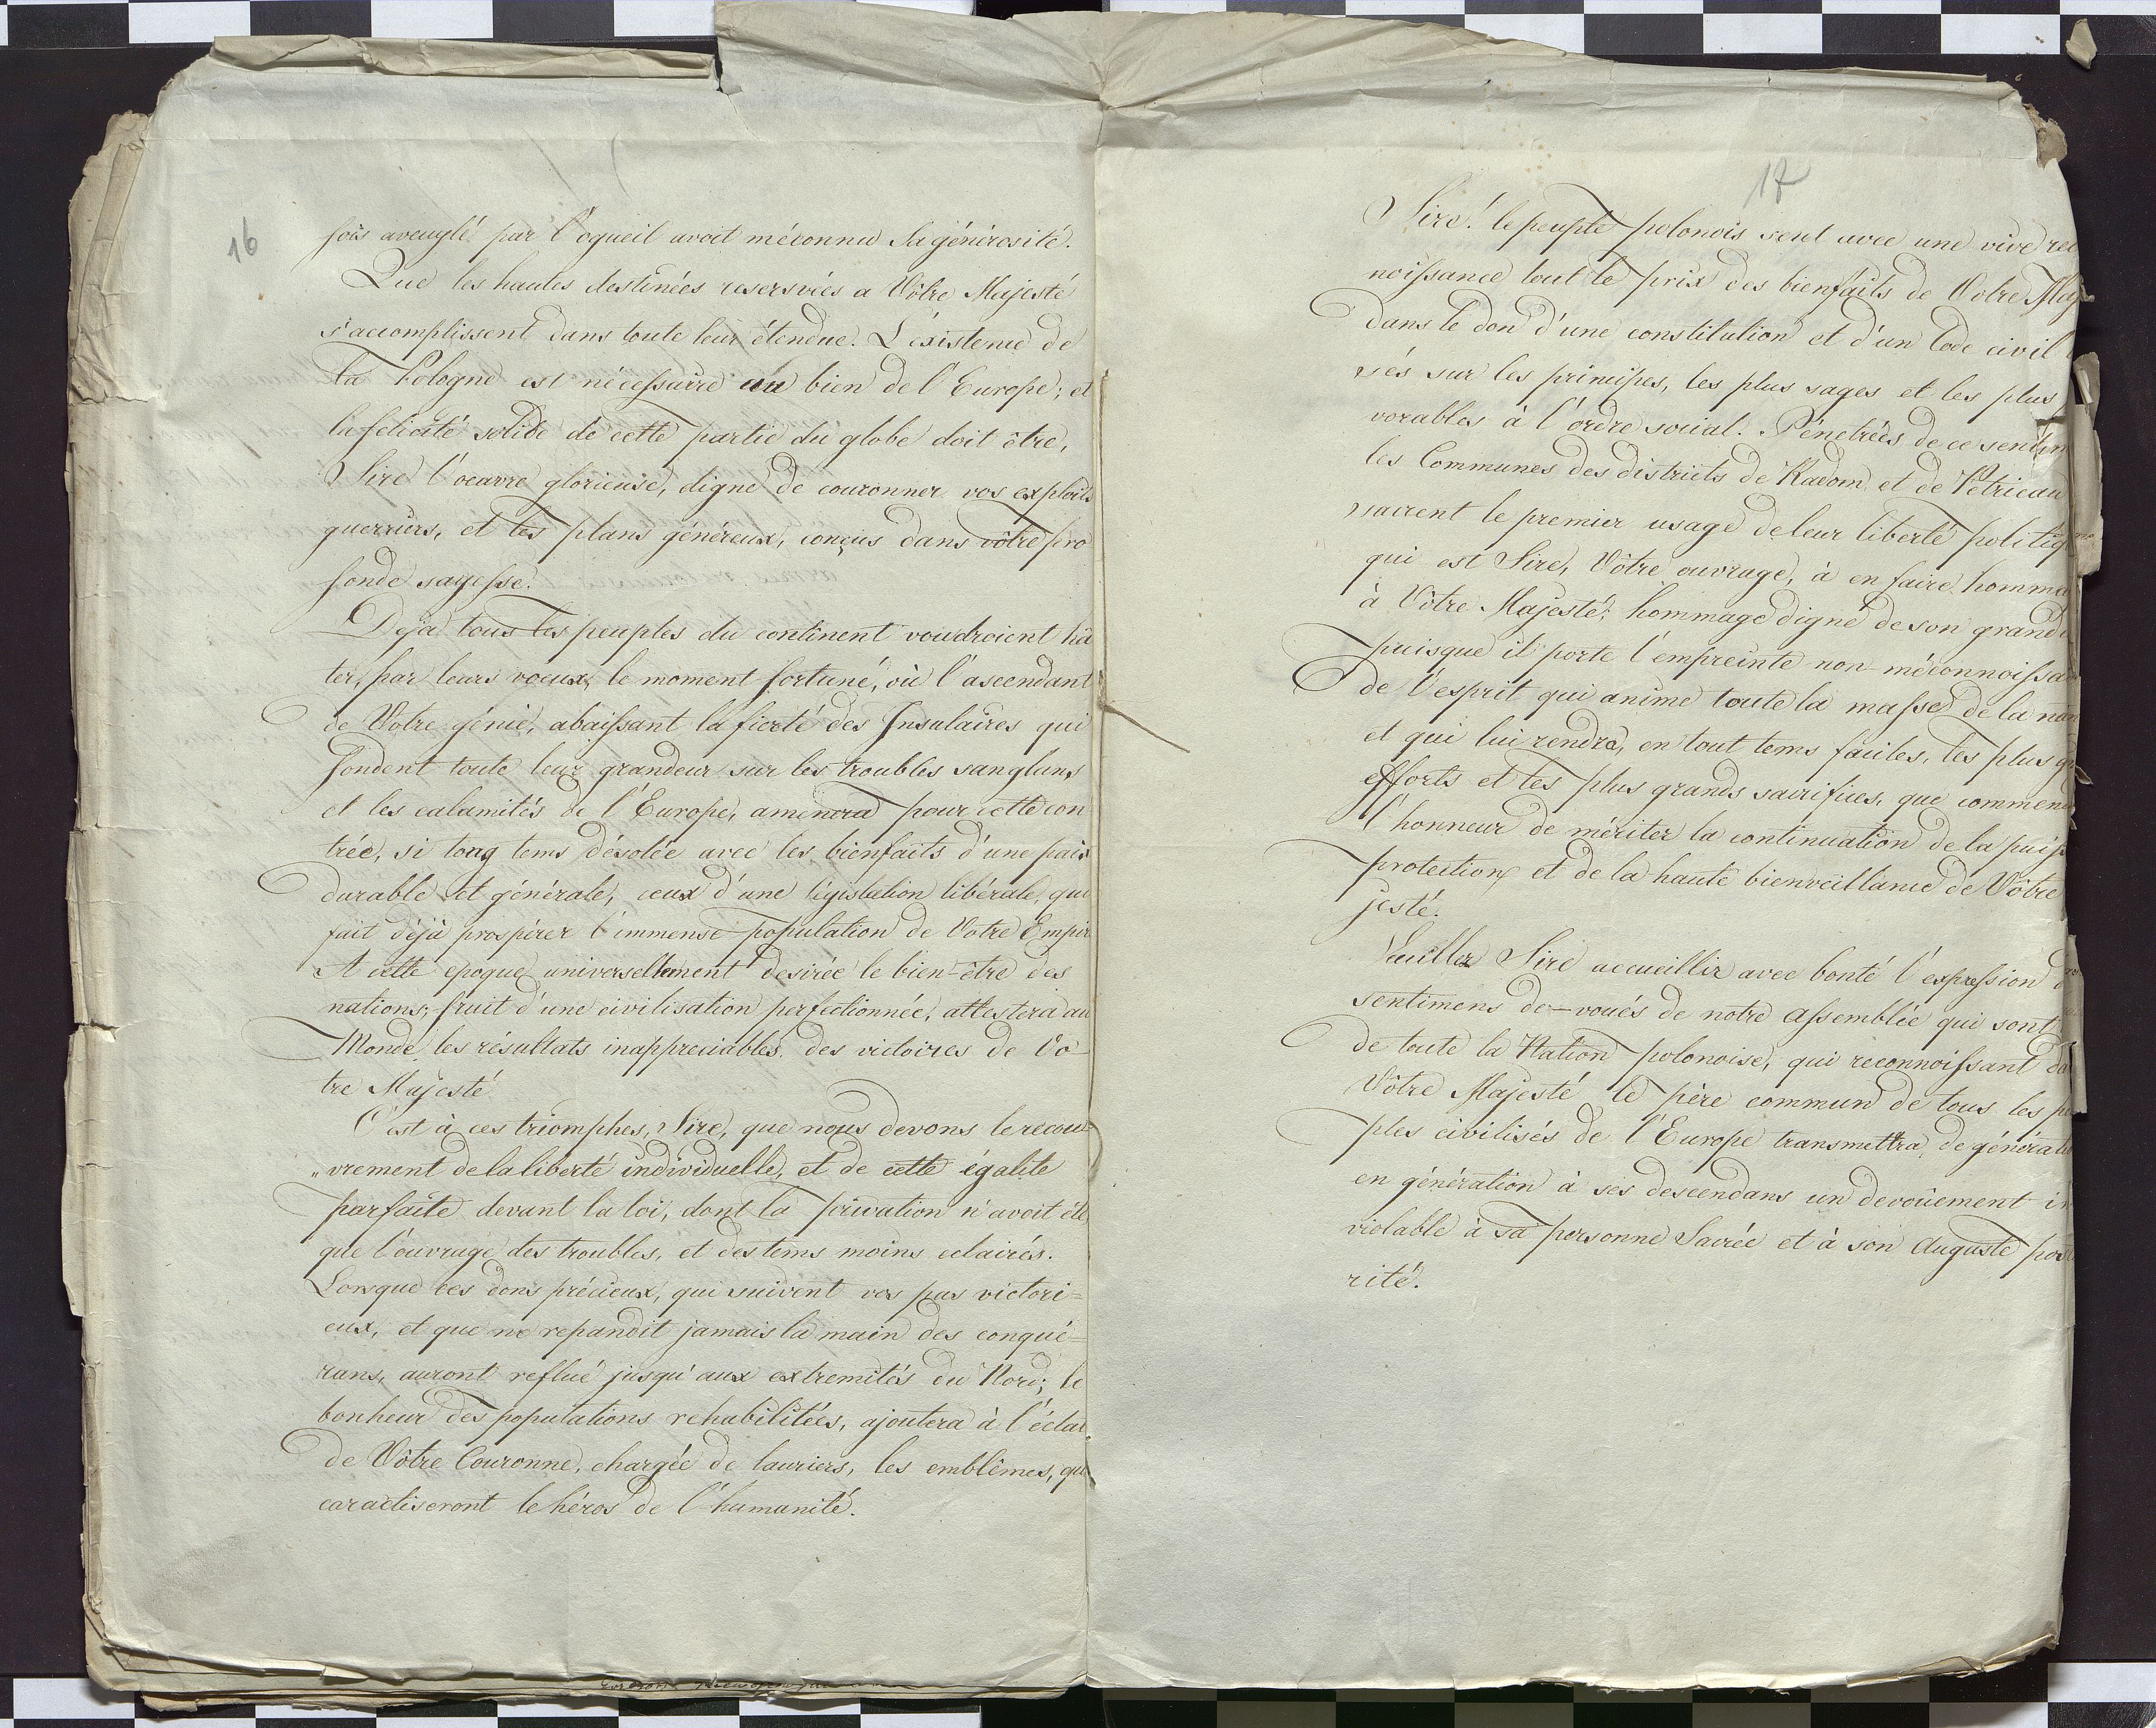 16
fois aveuglé par l'ogueil avoit méconnu Sa générosité.
Que les hautes destinées resersvées a Vôtre Majesté
s'accomplissent dans toute leur étendue. L'éxistence de
la Pologne est nécessaire au bien de l'Europe; et
la félicité solide de cette partie du globe doit être,
Sire l'oeuvre glorieuse, digne de couronner vos exploits
guerriers, et les plans généreux, conçus dans vôtre pro
fonde sagesse.
Deja tous les peuples du continent voudroient hâ
ter, par leurs voeux, le moment fortuné, où l'ascendant
de Votre génie, abaissant la fierté des Insulaires qui
fondent toute leur grandeur sur les troubles sanglans
et les calamités de l'Europe, amenera pour cette con
trée, si long tems désolée avec les bienfaits d'une paix
durable et générale, ceux d'une législation libérale, qui
fait déjà prospérer l'immense population de Votre Empire
A cette epoque universellement desirée le bien-être des
nations, fruit d'une civilisation perfectionnée, attestera au
Monde les résultats inappreciables des victoires de Vo-
tre Majesté
C'est à ces triomphes, Sire, que nous devons le recou-
„vrement de la liberté individuelle, et de cette égalite
parfaite devant la loi, dont la privation n'avoit été
que l'ouvrage des troubles, et des tems moins eclairés.
Lorsque ces dons précieux, qui suivent vos pas victori=
eux, et que ne repandit jamais la main des conqué-
rans, auront reflué jusqu'aux extremités du Nord; le
bonheur des populations rehabilitées, ajoutera à l'éclat
de Vôtre Couronne, chargée de lauriers, les emblêmes, qui
caractiseront le héros de l'humanité.
17
Sire! le peuple polonois sent avec une vive rec
noissance tout le prix des bienfaits de Votre Maj
dans le don d'une constitution et d'un Code civil
sés sur les principes, les plus sages et les plus
vorables à l'ordre social. Pénetrées de ce sentim
les Communes des districts de Radom et de Petricau
sacrent le premier usage de leur liberté politiq
qui est Sire, Vôtre ouvrage, à en faire homma
à Vôtre Majesté; hommage digne de son grand
puisque il porte l'empreinte non-méconnoissa
de l'esprit qui anime toute la masse de la na
et qui lui rendra, en tout tems faciles, les plus g
efforts et les plus grands sacrifices, que commen
l'honneur de mériter la continuation de la puiss
protection et de la haute bienveillance de Vôtre
jesté.
Veuillez Sire accueillir avec bonté l'expression d
sentimens de-voués de notre assemblée qui sont
de toute la Nation polonoise, qui reconnoissant da
Vôtre Majesté le père commun de tous les pe
ples civilisés de l'Europe transmettra, de générati
en génération à ses descendans un devoûement in
violable à sa personne Sacrée et à son Auguste post
rité.